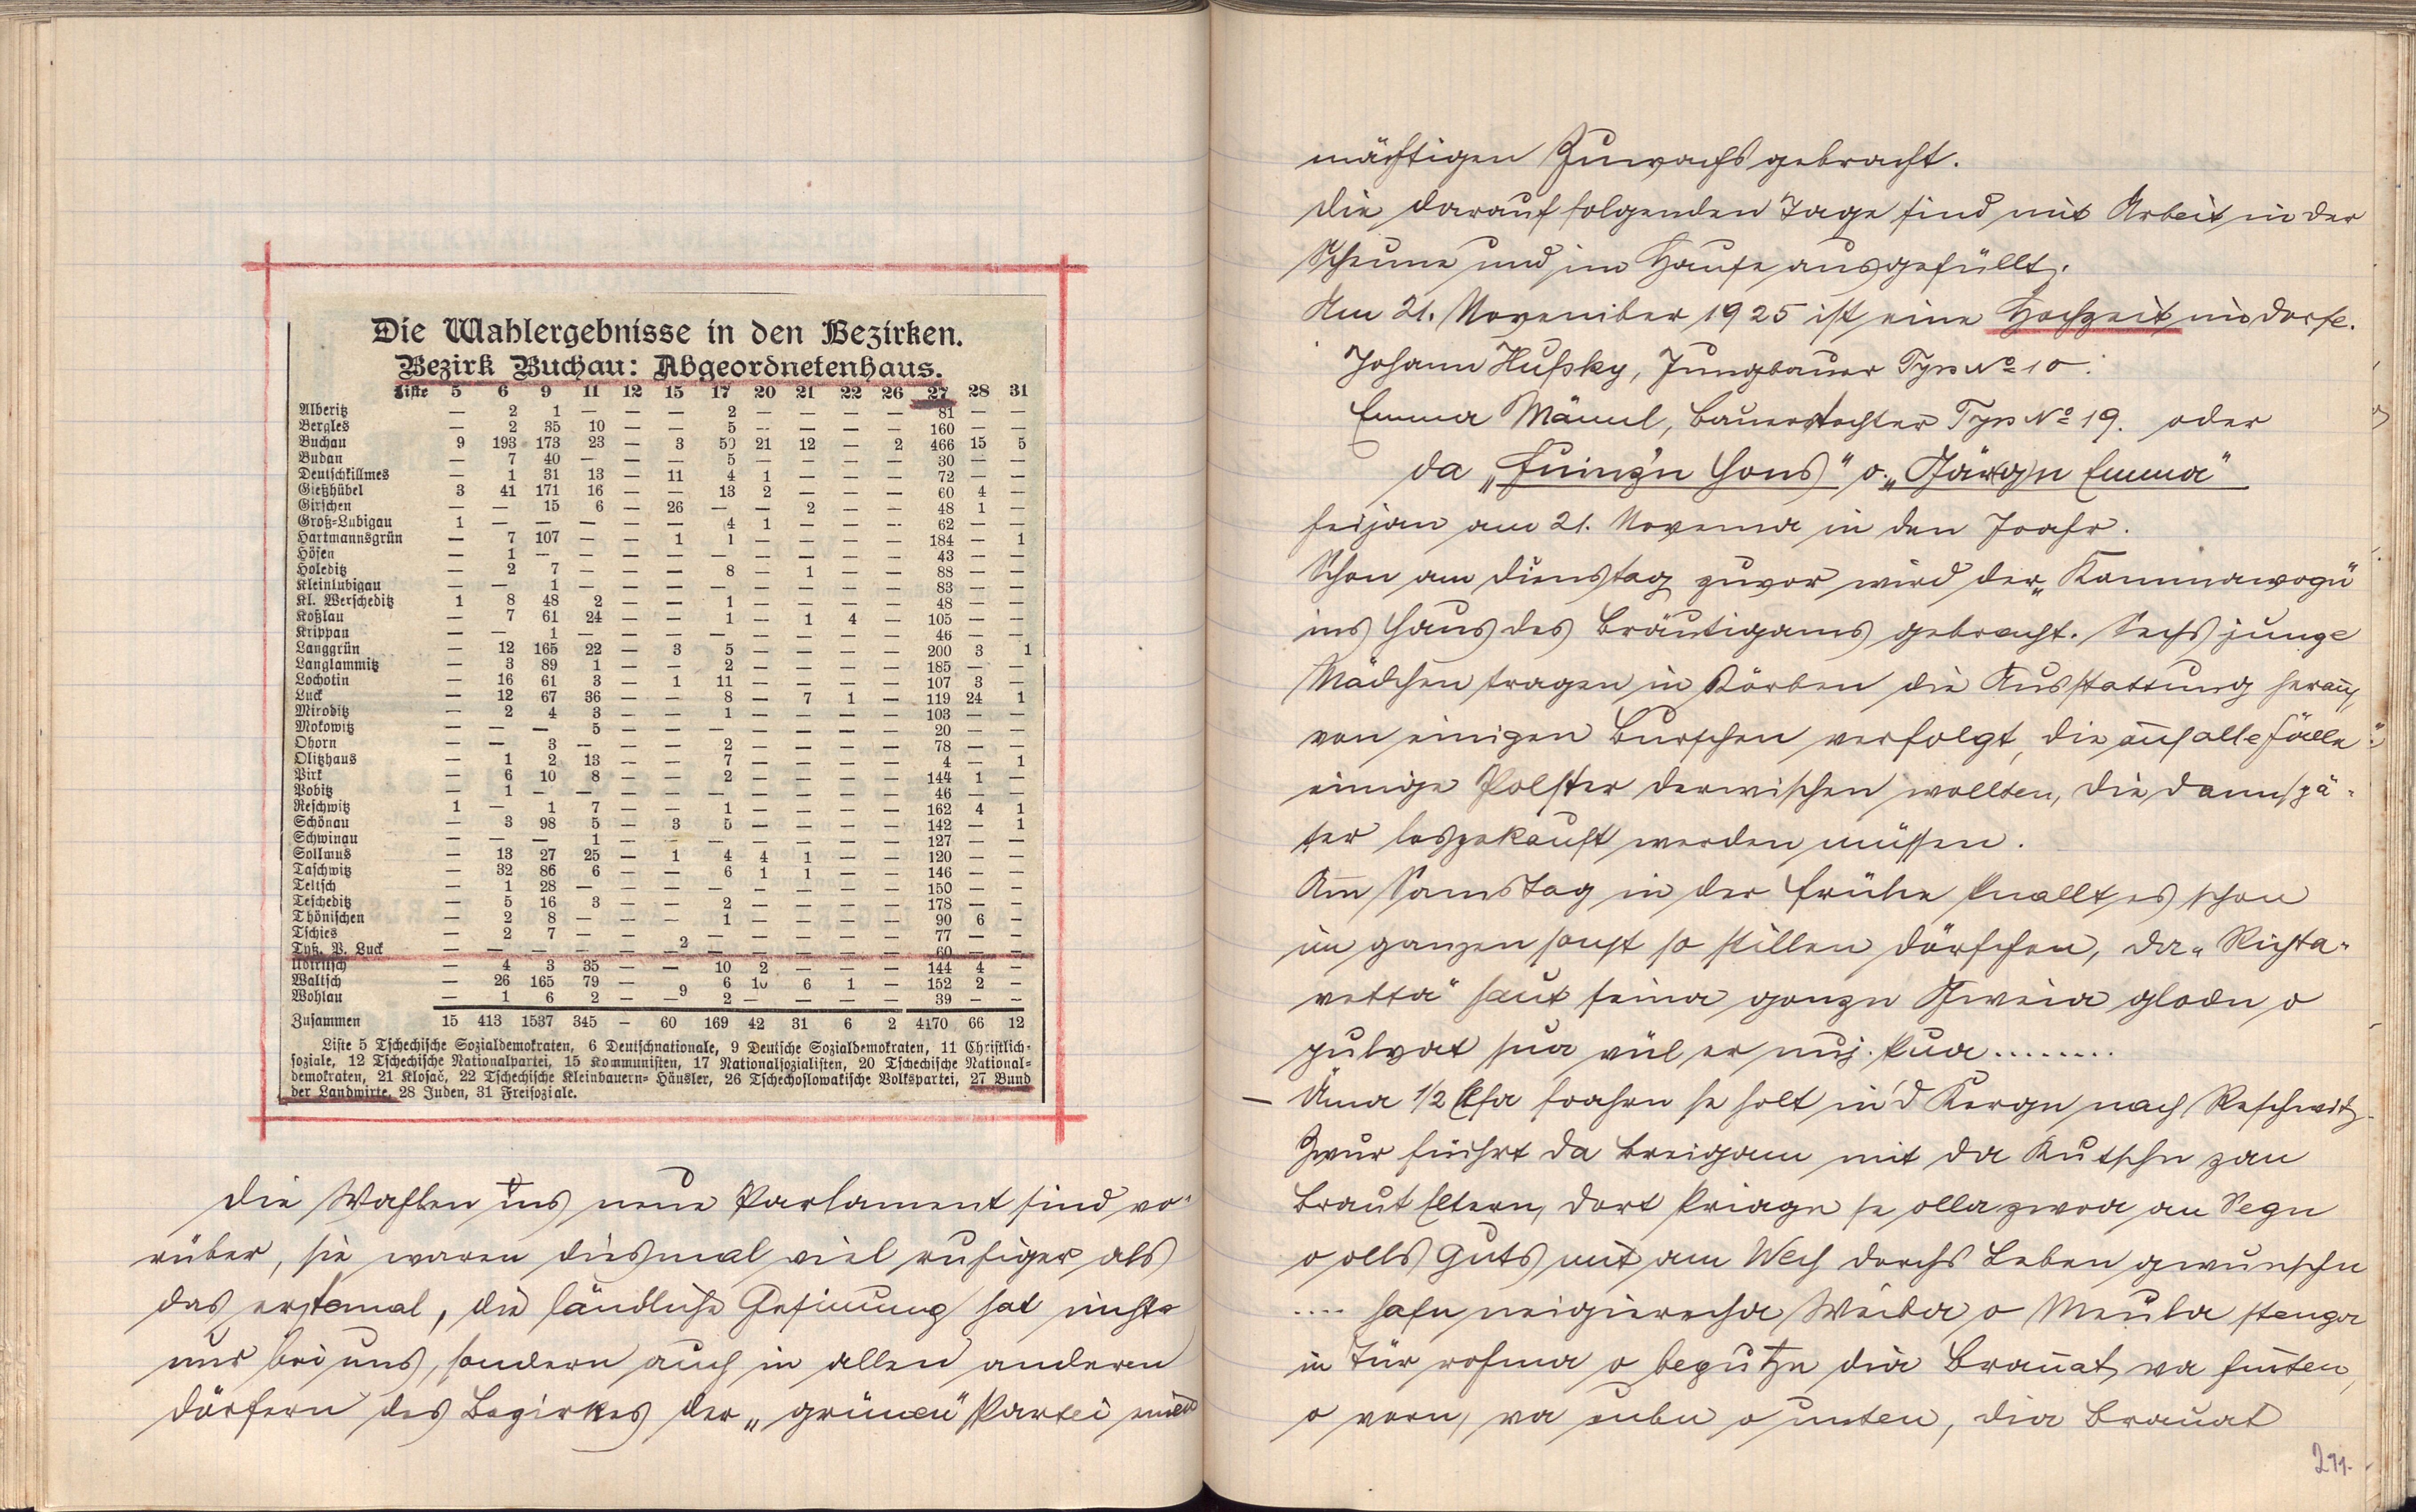 Die Wahlergebnisse in den Bezirken.
Bezirk Buchau: Abgeordnetenhaus.
Liste 5 6 9 11 12 15 17 20 21 22 26 27 28 31
Alberitz — 2 1 — — — 2 — — — — 81 — —
Bergles — 2 35 10 — — 5 — — — — 160 — —
Buchau 9 193 173 23 — 3 50 21 12 — 2 466 15 5
Budan — 7 40 — — — 5 — — — — 30 — —
Deutschkillmes — 1 31 13 — 11 4 1 — — — 72 — —
Gießhübel 3 41 171 16 — — 13 2 — — — 60 4 —
Girschen — — 15 6 — 26 — — 2 — — 48 1 —
Groß-Lubigau 1 — — — — — 4 1 — — — 62 — —
Hartmannsgrün — 7 107 — — 1 1 — — — — 184 — 1
Höfen — 1 — — — — — — — — — 43 — —
Holeditz — 2 7 — — — 8 — 1 — — 88 — —
Kleinlubigau — — 1 — — — — — — — — 83 — —
Kl. Werscheditz 1 8 48 2 — — 1 — — — — 48 — —
Koßlau — 7 61 24 — — 1 — 1 4 — 105 — —
Krippau — — 1 — — — — — — — — 46 — —
Langgrün — 12 165 22 — 3 5 — — — — 200 3 1
Langlammitz — 3 89 1 — — 2 — — — — 185 — —
Lochotin — 16 61 3 — 1 11 — — — — 107 3 —
Luck — 12 67 36 — — 8 — 7 1 — 119 24 1
Miroditz — 2 4 3 — — 1 — — — — 103 — —
Mokowitz — — — 5 — — — — — — — 20 — —
Ohorn — — 3 — — — 2 — — — — 78 — —
Olitzhaus — 1 2 13 — — 7 — — — — 4 — 1
Pirk — 6 10 8 — — 2 — — — — 144 1 —
Pobitz — 1 — — — — — — — — — 46 — —
Reschwitz 1 — 1 7 — — 1 — — — — 162 4 1
Schönau — 3 98 5 — 3 5 — — — — 142 — 1
Schwinau — — — 1 — — — — — — — 127 — —
Sollmus — 13 27 25 — 1 4 4 1 — — 120 — —
Taschwitz — 32 86 6 — — 6 1 1 — — 146 — —
Teltsch — 1 28 — — — — — — — — 150 — —
Tescheditz — 5 16 3 — — 2 — — — — 178 — —
Thönischen — 2 8 — — — 1 — — — — 90 6 —
Tschies — 2 7 — — — — — — — — 77 — —
Tyß. P. Luck — — — — — 2 — — — — — 60 — —
Udritsch — 4 3 35 — — 10 2 — — — 144 4 —
Waltsch — 26 165 79 — 9 6 10 6 1 — 152 2 —
Wohlau — 1 6 2 — — 2 — — — — 39 — —
Zusammen 15 413 1537 345 — 60 169 42 31 6 2 4170 66 12
Liste 5 Tschechische Sozialdemokraten, 6 Deutschnationale, 9 Deutsche Sozialdemokraten, 11 Christlich-
soziale, 12 Tschechische Nationalpartei, 15 Kommunisten, 17 Nationalsozialisten, 20 Tschechische National-
demokraten, 21 Klofač, 22 Tschechische Kleinbauern-Häusler, 26 Tschechoslowakische Volkspartei, 27 Bund
der Landwirte, 28 Juden, 31 Freisoziale.
Die Wahlen ins neue Parlament sind vo-
rüber, sie waren diesmal viel ruhiger als
das erstemal, die ländliche Gesinnung hat nicht
nur bei uns, sondern auch in allen anderen
Dörfern des Bezirkes der „grünen" Partei einen
mächtigen Zuwachs gebracht.
Die darauffolgenden Tage sind mit Arbeit in der
Scheune und im Hause ausgefüllt.
Am 21. November 1925 ist eine Hochzeit im Dorfe.
Johann Hußky, Jungbauer Tyss No 10.
Emma Mämel, Bauerstochter Tyss No 19. oder
da „ Hons" o. „ Emma"
am 21. Novema in den Joahr.
Schon am Dienstag zuvor wird der „Kammawogn"
ins Haus des Bräutigams gebracht. Sechs junge
Mädchen tragen in Körben die Ausstattung herauf,
von einigen Burschen verfolgt, die auf alle Fälle
einige Polster derwischen wollten, die dann spä-
ter losgekauft werden müssen.
Am Samstag in der Frühe knallt es schon
im ganzen sonst so stillen Dörfchen, da „Richta-
vetta" haut seina gonzn o
pulvat sua vül er
— Üma 1/2 foahrn se holt in d' Kergn nach Reschwitz.
Zwur führt da Breigam mit da Kutschn zan
Brauteltern, dort kriagn se olla zwoa an Segn
o olls Guts mit am Wech dorchs Leben gwunschn
.... neigierecha Weiba o stenga
in Tür o begutzn dia Brauat va hinten,
o vorn, va ubn o unten, dia Brauat
211.